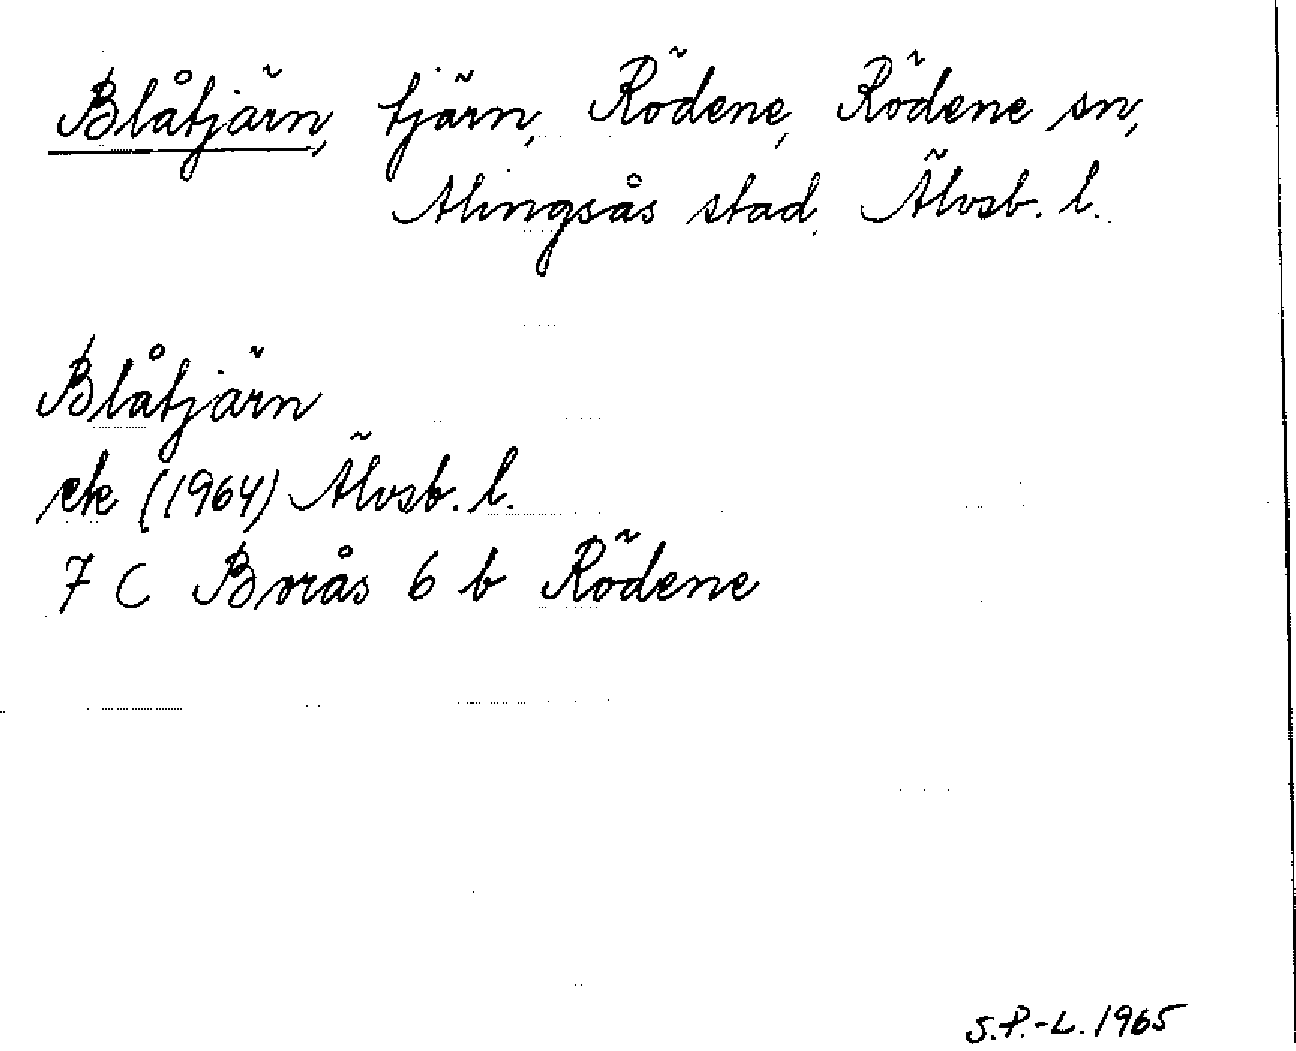 Blåtjärn, tjärn, Rödene, Rödene sn,
Alingsås stad. Älvsb. l.
Blåtjärn
ek (1964) Älvsb. l.
7 C Borås 6 b Rödene
S.P.-L. 1965